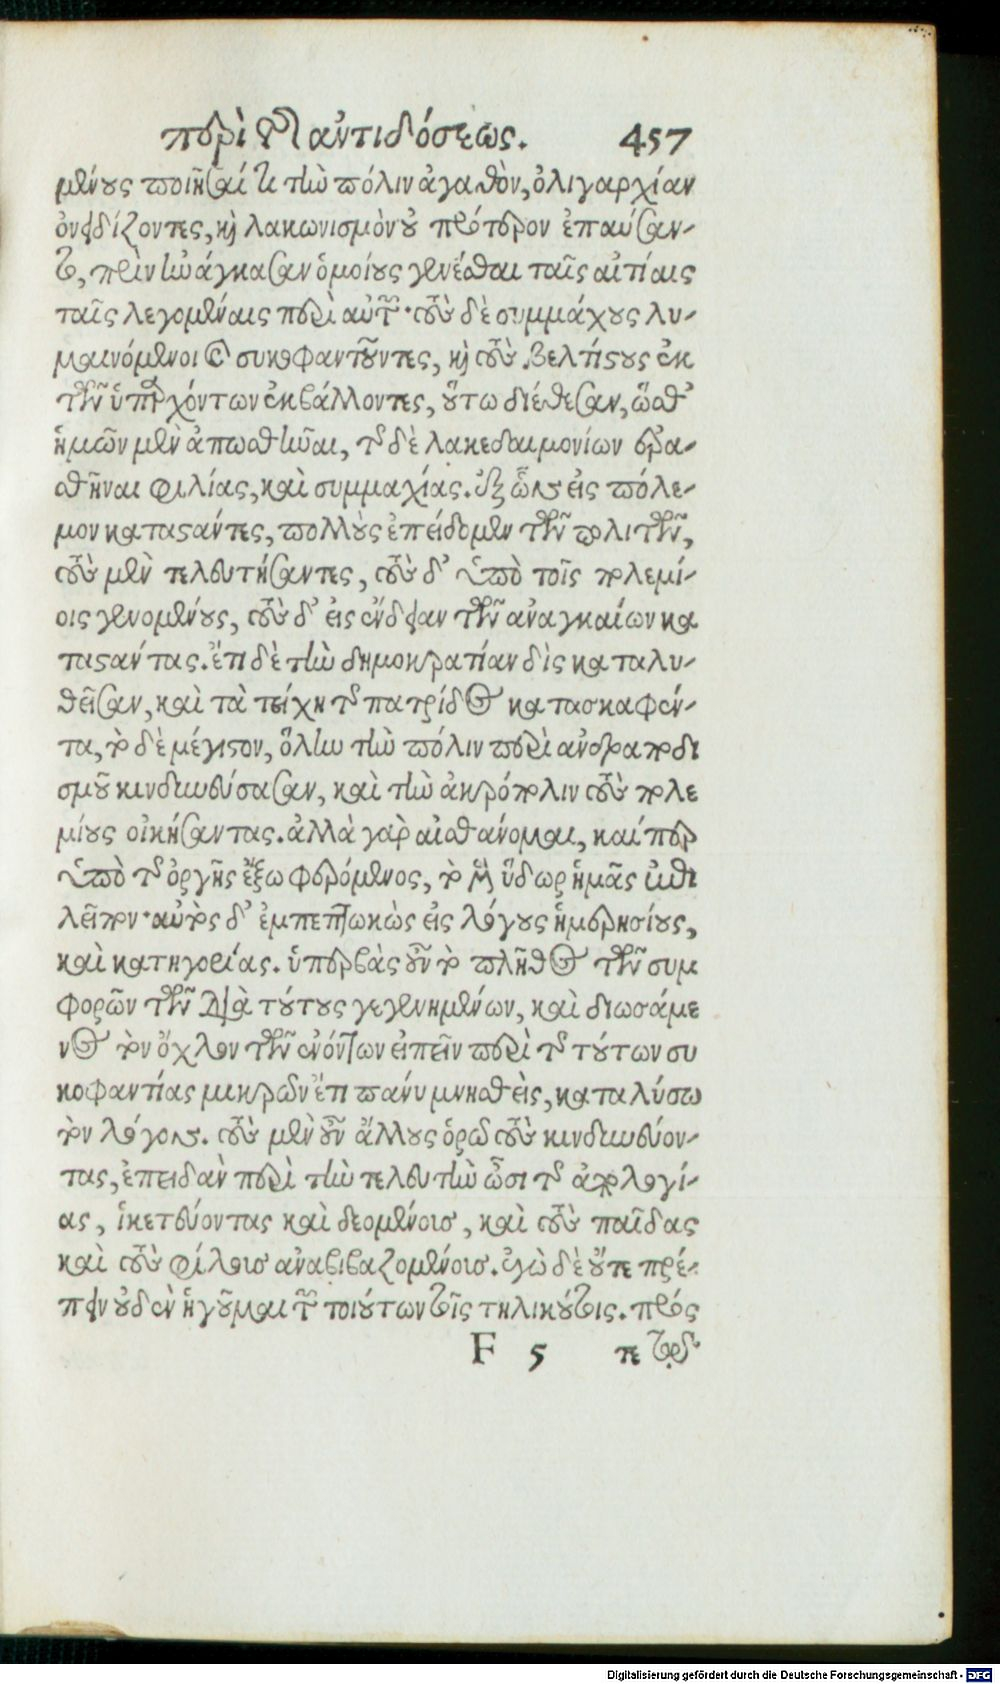 περὶ τῆς ἀντιδόσεως. 457
μένους ποιῆσαί τι τὴν πόλιν ἀγαθὸν, ὀλιγαρχίαν
ὀνειδίζοντες, καὶ λακωνισμὸν οὐ πρότερον ἐπαύσαν-
το, πρὶν ἠνάγκασαν ὁμοίους γενέσθαι ταῖς αἰτίαις
ταῖς λεγομέναις περὶ αὐτῶν· τοὺς δὲ συμμάχους λυ-
μαινόμενοι καὶ συκοφαντοῦντες, καὶ τοὺς βελτίστους ἐκ
τῶν ὑπαρχόντων ἐκβάλλοντες, οὕτω διέθεσαν, ὥσθ'
ἡμῶν μὲν ἀπωσθῆναι, τῆς δὲ λακεδαιμονίων ἐρα-
σθῆναι φιλίας, καὶ συμμαχίας. ἐξ ὧν εἰς πόλε-
μον καταστάντες, πολλοὺς ἐπείδομεν τῶν πολιτῶν,
τοὺς μὲν τελευτήσαντες, τοὺς δ' ὑπὸ τοῖς πολεμί-
οις γενομένους, τοὺς δ' εἰς ἔνδειαν τῶν ἀναγκαίων κα
ταστάντας. ἔτι δὲ τὴν δημοκρατίαν δὶς καταλυ-
θεῖσαν, καὶ τὰ τείχη τῆς πατρίδος κατασκαφέν-
τα, τὸ δὲ μέγιστον, ὅλην τὴν πόλιν περὶ ἀνδραποδι
σμοῦ κινδυνεύσασαν, καὶ τὴν ἀκρόπολιν τοὺς πολε
μίους οἰκήσαντας. ἀλλὰ γὰρ αἰσθάνομαι, καίπερ
ὑπὸ τῆς ὀργῆς ἔξω φερόμενος, τὸ μὲν ὕδωρ ἡμᾶς ἐπι
λεῖπον· αὐτὸς δ' ἐμπεπτωκὼς εἰς λόγους ἡμερησίους,
καὶ κατηγορίας. ὑπερβὰς οὖν τὸ πλῆθος τῶν συμ
φορῶν τῶν διὰ τούτους γεγενημένων, καὶ διωσάμε
νος τὸν ὄχλον τῶν ἐνόντων εἰπεῖν περὶ τῆς τούτων συ
κοφαντίας μικρῶν ἔτι πάνυ μνησθεὶς, καταλύσω
τὸν λόγον. τοὺς μὲν οὖν ἄλλους ὁρῶ τοὺς κινδυνεύον-
τας, ἐπειδὰν περὶ τὴν τελευτὴν ὦσι τῆς ἀπολογί-
ας, ἱκετεύοντας καὶ δεομένους, καὶ τοὺς παῖδας
καὶ τοὺς φίλους ἀναβιβαζομένους. ἐγὼ δὲ οὔτε πρέ-
πειν οὐδὲν ἡγοῦμαι τῶν τοιούτων τοῖς τηλικούτοις. πρός
F 5 τε τοῦ